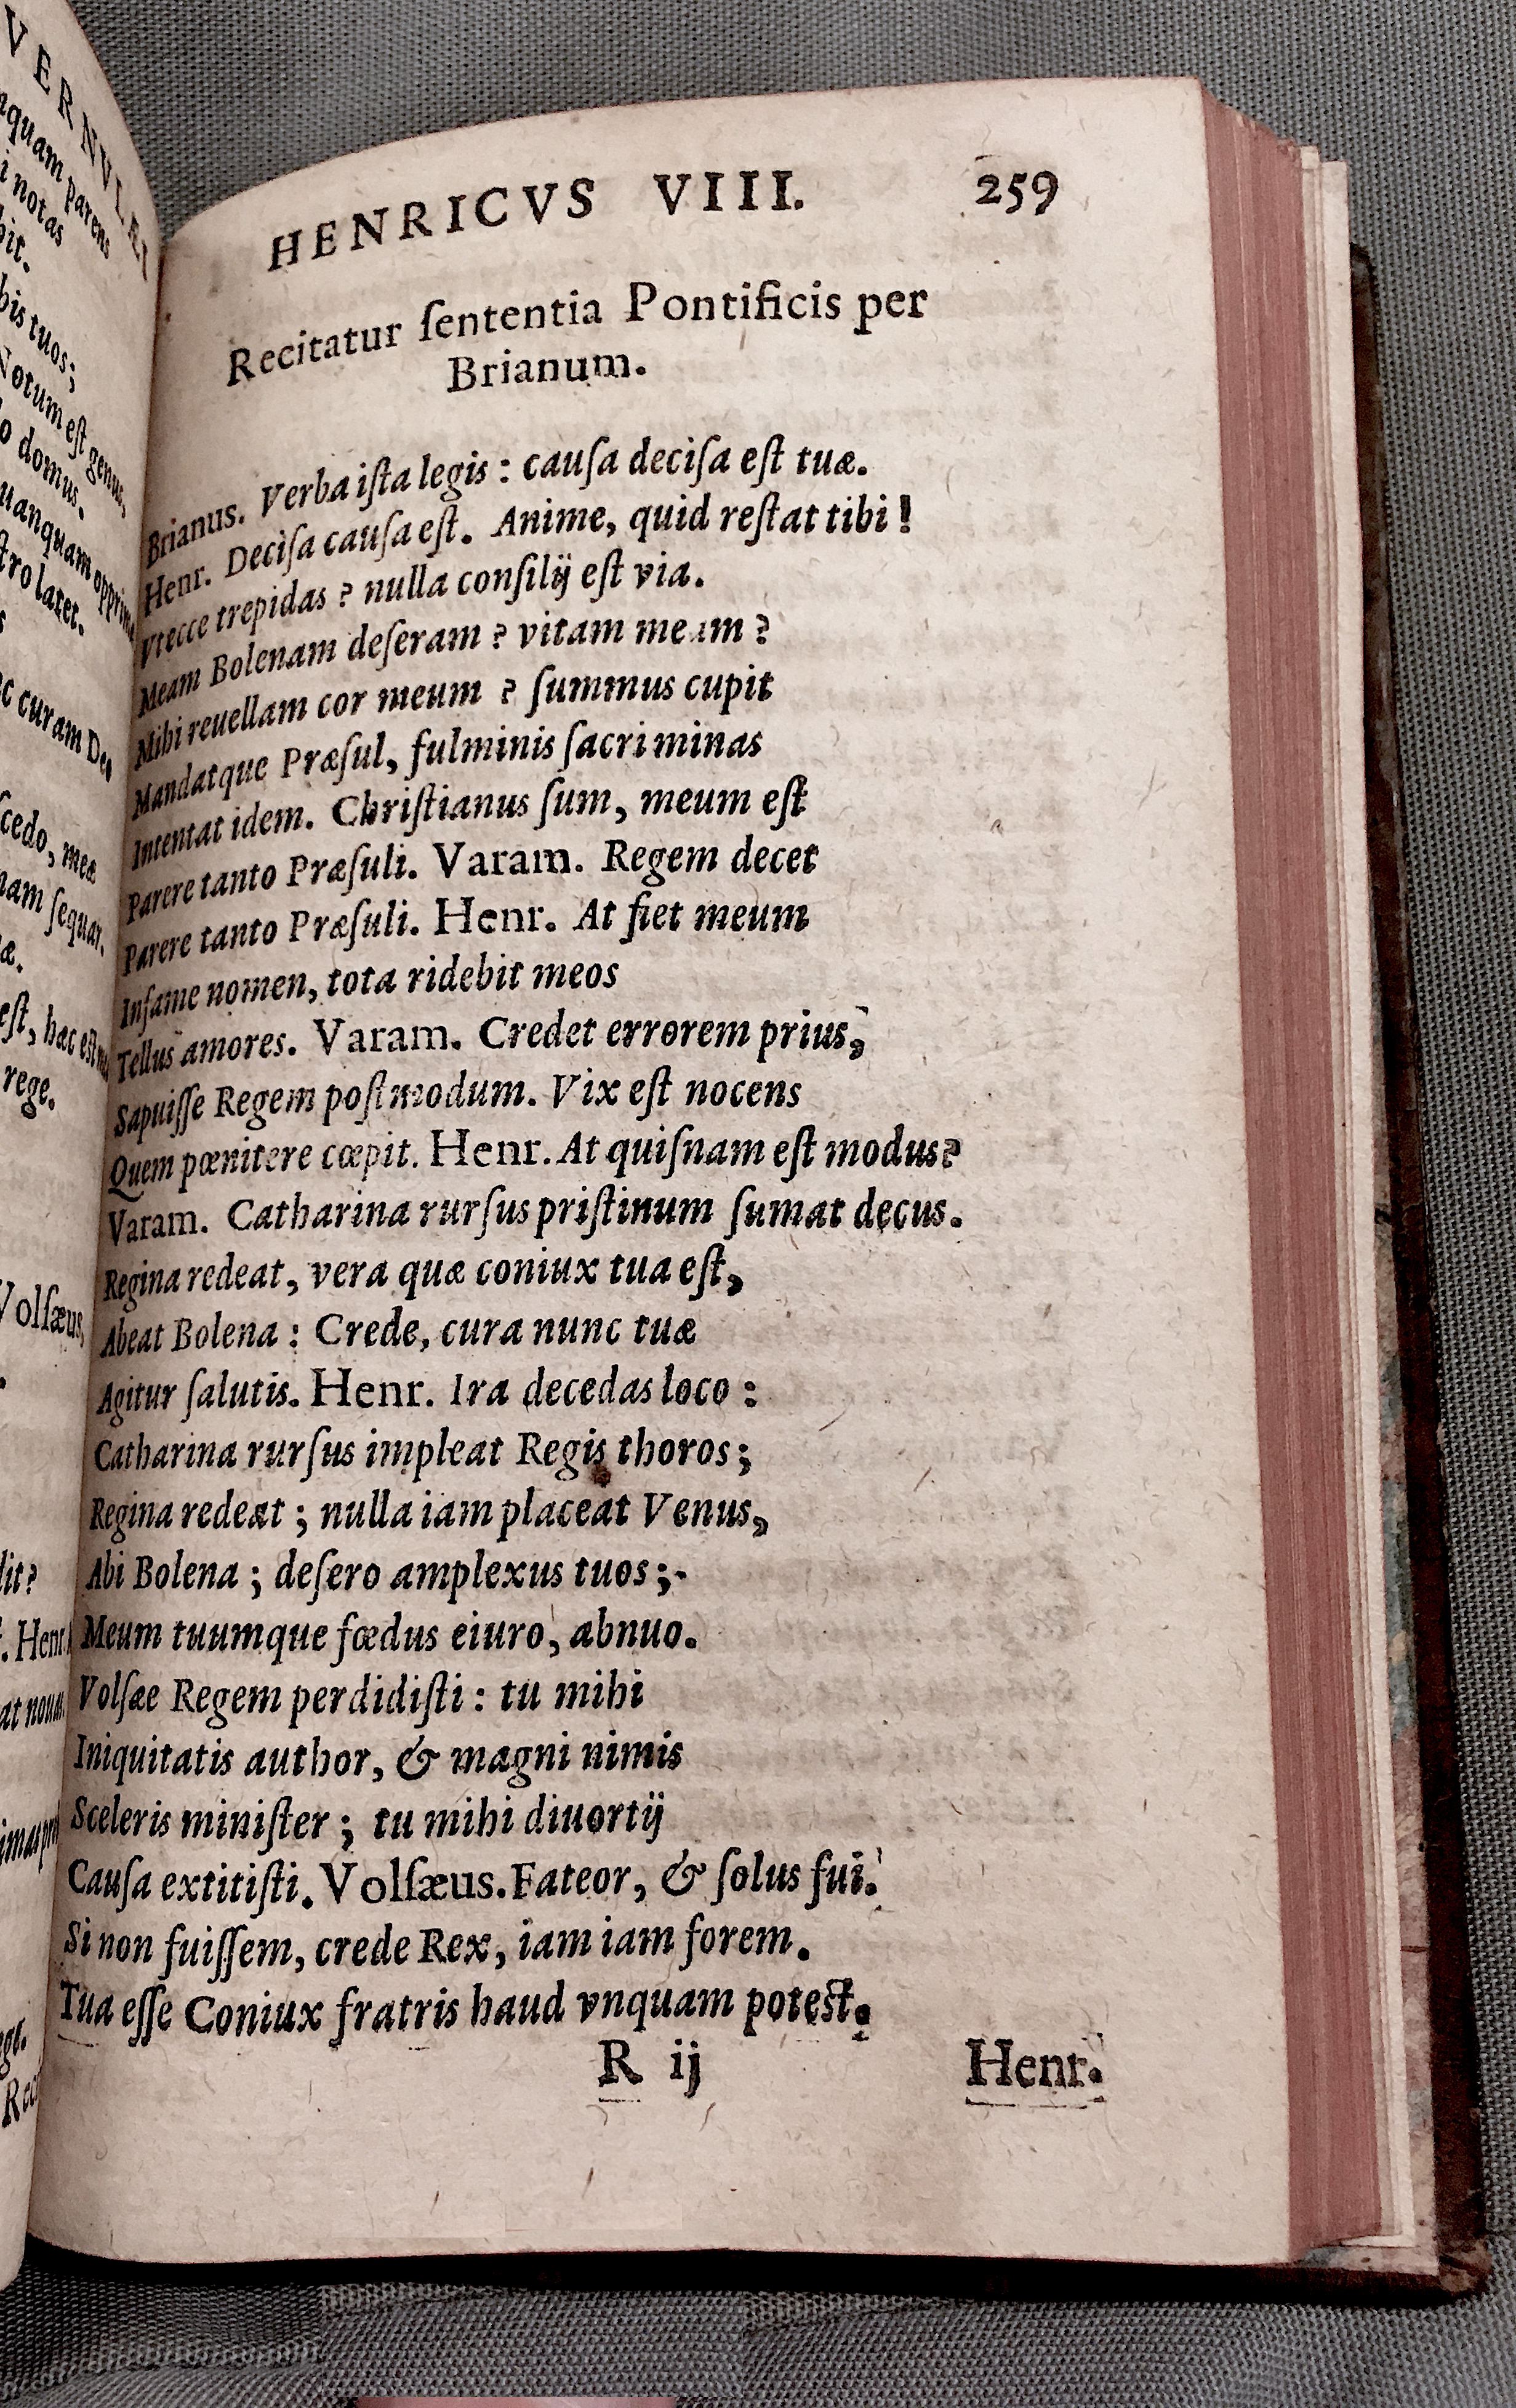 VERNVLÆI
quam parens
i notas
bit.
bis tuos;
Notum est genus,
o domus.
uanquam opprim
stro latet.
s
c curam Deo
cedo, meæ
nam sequar.
æ.
est, hæc est
rege.
Volsæus,
dit?
. Henr.
at nouu
HENRICVS VIII. 259
Recitatur ſententia Pontificis per
Brianum.
Brianus. Verba iſta legis : cauſa deciſa eſt tuæ.
Henr. Deciſa cauſa eſt. Anime, quid reſtat tibi !
Vtecce trepidas ? nulla conſilij eſt via.
Meam Bolenam deſeram ? vitam meam ?
Mihi reuellam cor meum ? ſummus cupit
Mandatque Præſul, fulminis ſacri minas
Intentat idem. Chriſtianus ſum, meum eſt
Parere tanto Præſuli. Varam. Regem decet
Parere tanto Præſuli. Henr. At fiet meum
Infame nomen, tota ridebit meos
Tellus amores. Varam. Credet errorem prius,
Sapuiſſe Regem poſtmodum. Vix eſt nocens
Quem pœnitere cœpit. Henr. At quiſnam eſt modus?
Varam. Catharina rurſus priſtinum ſumat decus.
Regina redeat, vera quæ coniux tua eſt,
Abeat Bolena : Crede, cura nunc tuæ
Agitur ſalutis. Henr. Ira decedas loco :
Catharina rurſus impleat Regis thoros ;
Regina redeat ; nulla iam placeat Venus,
Abi Bolena ; deſero amplexus tuos ;
Meum tuumque fœdus eiuro, abnuo.
Volſæe Regem perdidiſti : tu mihi
Iniquitatis author, & magni nimis
Sceleris miniſter ; tu mihi diuortij
Cauſa extitiſti. Volſæus. Fateor, & ſolus fui.
Si non fuiſſem, crede Rex, iam iam forem.
Tua eſſe Coniux fratris haud vnquam poteſt.
R ij Henr.